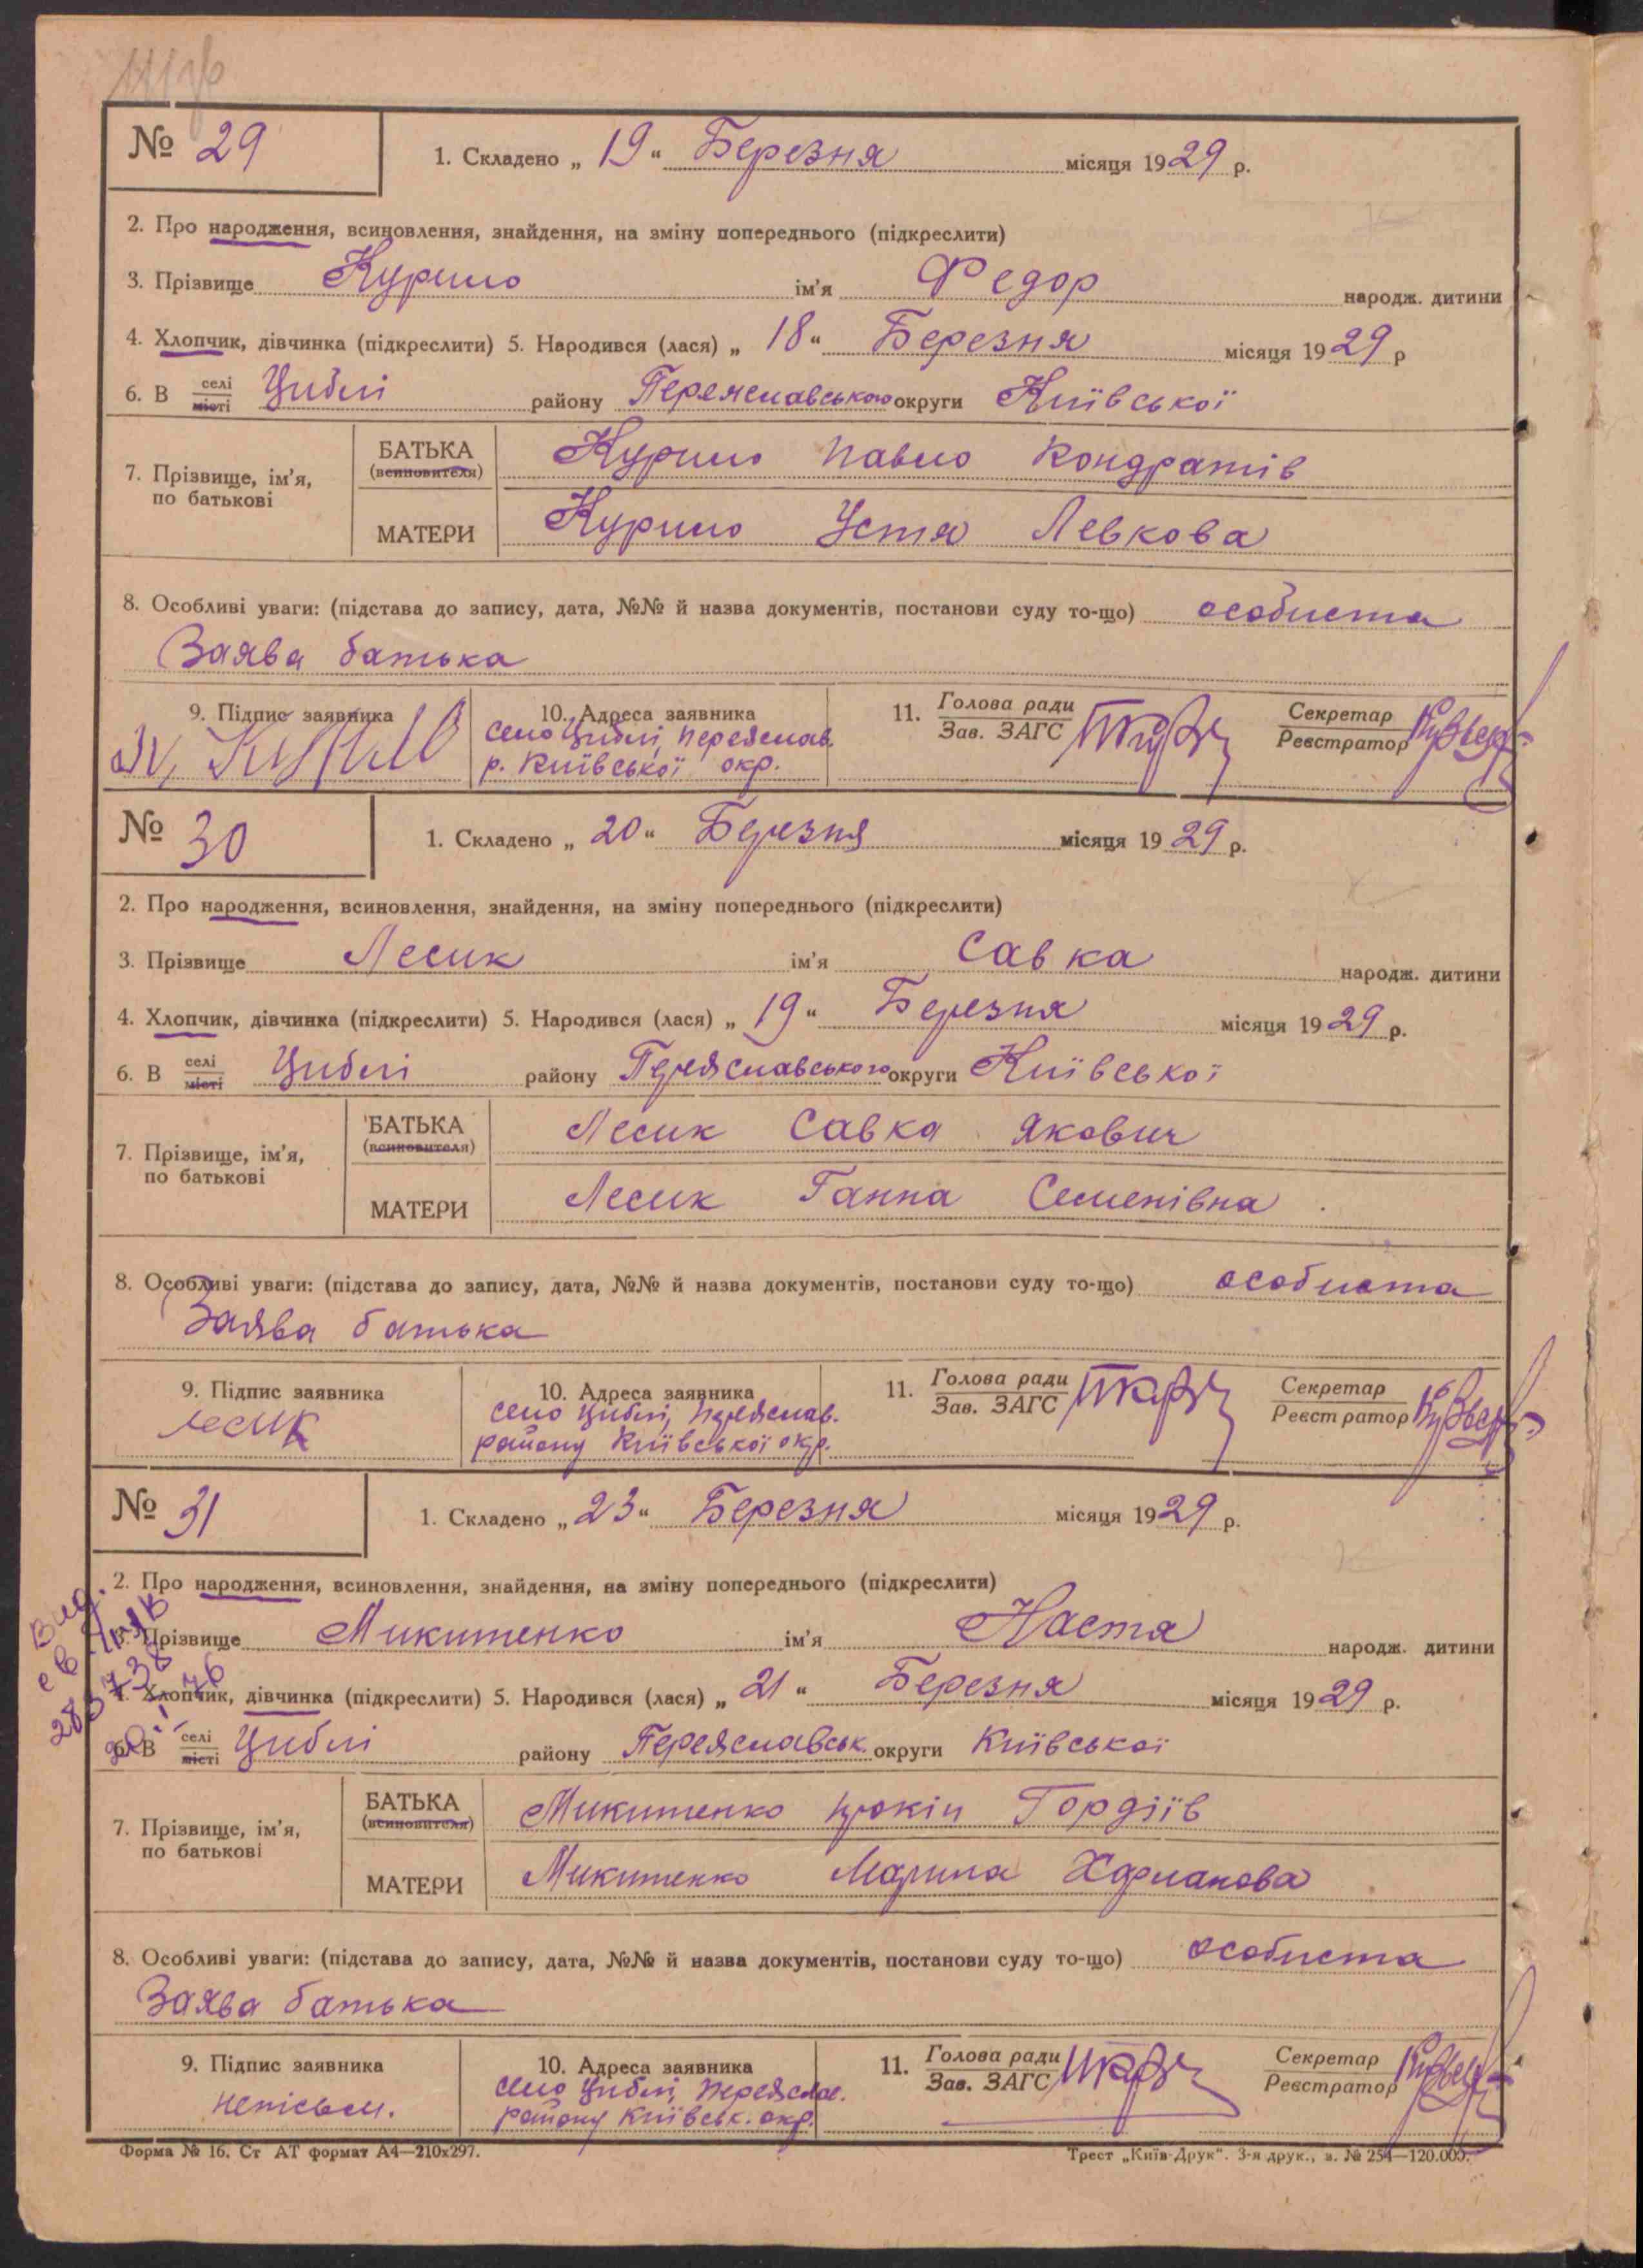 № 29
1. Складено „ 19 “ Березня місяця 1929 р.
2. Про народження, всиновлення, знайдення, на зміну попереднього (підкреслити)
3. Прізвище Курило ім'я Федор народж. дитини
4. Хлопчик, дівчинка (підкреслити) 5. Народився (лася) „ 18 “ Березня місяця 1929 р
6. В селі місті Циблі району Переяславського округи Київської
7. Прізвище, ім'я, по батькові
БАТЬКА (всиновителя) Курило Павло Кондратів
МАТЕРИ Курило Устя Левкова
8. Особливі уваги: (підстава до запису, дата, №№ й назва документів, постанови суду то-що) особиста
Заява батька
9. Підпис заявника Курило
10. Адреса заявника
село Циблі, Переяслав.
р. Київської окр.
11. Голова ради Зав. ЗАГС
Секретар Реєстратор
№ 30
1. Складено „ 20 “ Березня місяця 1929 р.
2. Про народження, всиновлення, знайдення, на зміну попереднього (підкреслити)
3. Прізвище Лесик ім'я Савка народж. дитини
4. Хлопчик, дівчинка (підкреслити) 5. Народився (лася) „ 19 “ Березня місяця 1929 р.
6. В селі місті Циблі району Переяславського округи Київської
7. Прізвище, ім'я, по батькові
БАТЬКА (всиновителя) Лесик Савка Якович
МАТЕРИ Лесик Ганна Семенівна
8. Особливі уваги: (підстава до запису, дата, №№ й назва документів, постанови суду то-що) особиста
Заява батька
9. Підпис заявника Лесик
10. Адреса заявника
село Циблі, Переяслав.
району Київської окр.
11. Голова ради Зав. ЗАГС
Секретар Реєстратор
№ 31
1. Складено „ 23 “ Березня місяця 1929 р.
2. Про народження, всиновлення, знайдення, на зміну попереднього (підкреслити)
3. Прізвище Микитенко ім'я Настя народж. дитини
4. Хлопчик, дівчинка (підкреслити) 5. Народився (лася) „ 21 “ Березня місяця 1929 р.
6. В селі місті Циблі району Переяславськ. округи Київської
7. Прізвище, ім'я, по батькові
БАТЬКА (всиновителя) Микитенко Гордіїв
МАТЕРИ Микитенко Марина
8. Особливі уваги: (підстава до запису, дата, №№ й назва документів, постанови суду то-що) особиста
Заява батька
9. Підпис заявника
непісьм.
10. Адреса заявника
село Циблі, Переяслав.
району Київськ. окр.
11. Голова ради Зав. ЗАГС
Секретар Реєстратор
Форма № 16. Ст АТ формат А4—210х297.
Трест „Київ-Друк“. 3-я друк., з. № 254—120.000.